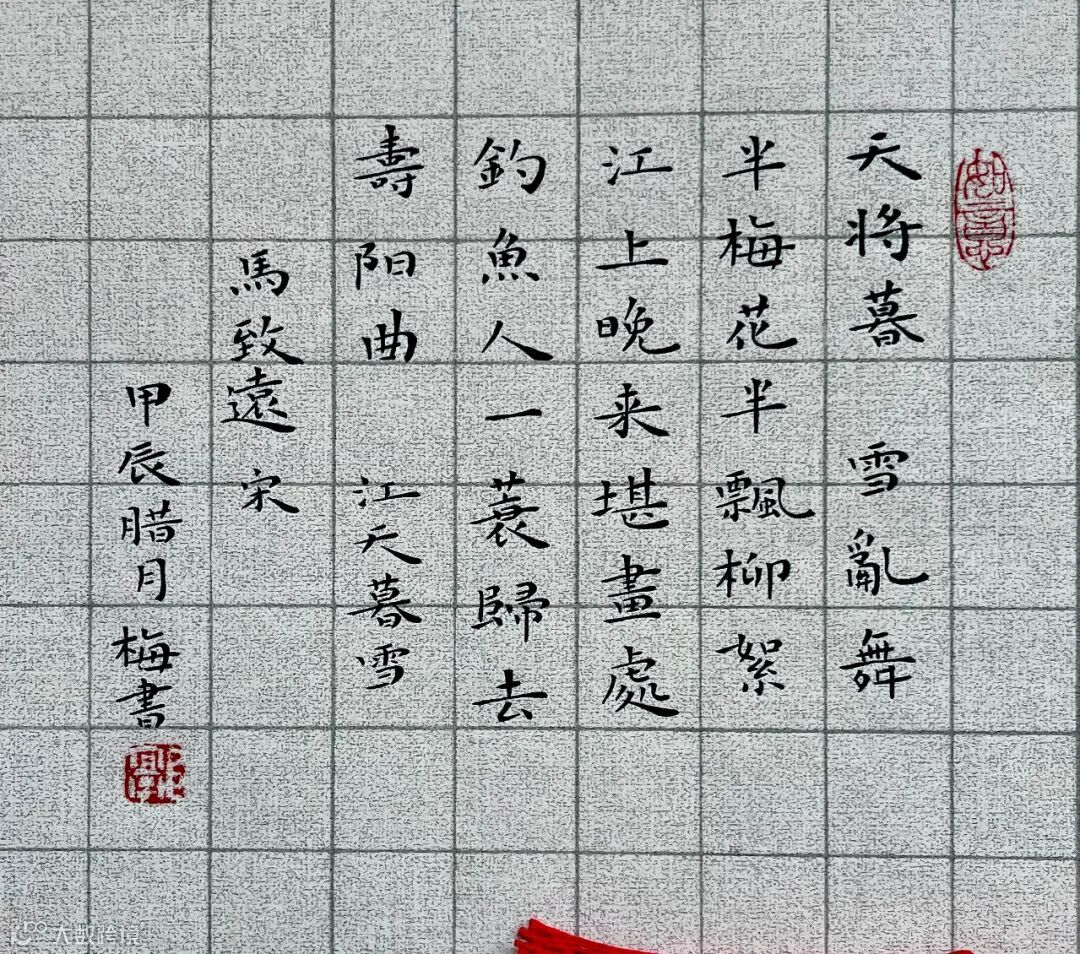 天将暮 雪亂舞
半梅花半飄柳絮
江上晚来堪畫處
釣魚人一蓑歸去
壽阳曲 江天暮雪
馬致遠 宋
甲辰腊月梅書
大数跨境